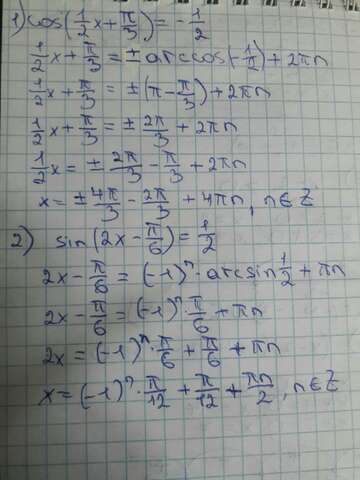 1) cos(1/2x + π/3) = -1/2
1/2x + π/3 = ± arccos(-1/2) + 2πn
1/2x + π/3 = ± (π - π/3) + 2πn
1/2x + π/3 = ± 2π/3 + 2πn
1/2x = ± 2π/3 - π/3 + 2πn
x = ± 4π/3 - 2π/3 + 4πn, n∈Z
2) sin(2x - π/6) = 1/2
2x - π/6 = (-1)ⁿ · arcsin 1/2 + πn
2x - π/6 = (-1)ⁿ · π/6 + πn
2x = (-1)ⁿ · π/6 + π/6 + πn
x = (-1)ⁿ · π/12 + π/12 + πn/2, n∈Z